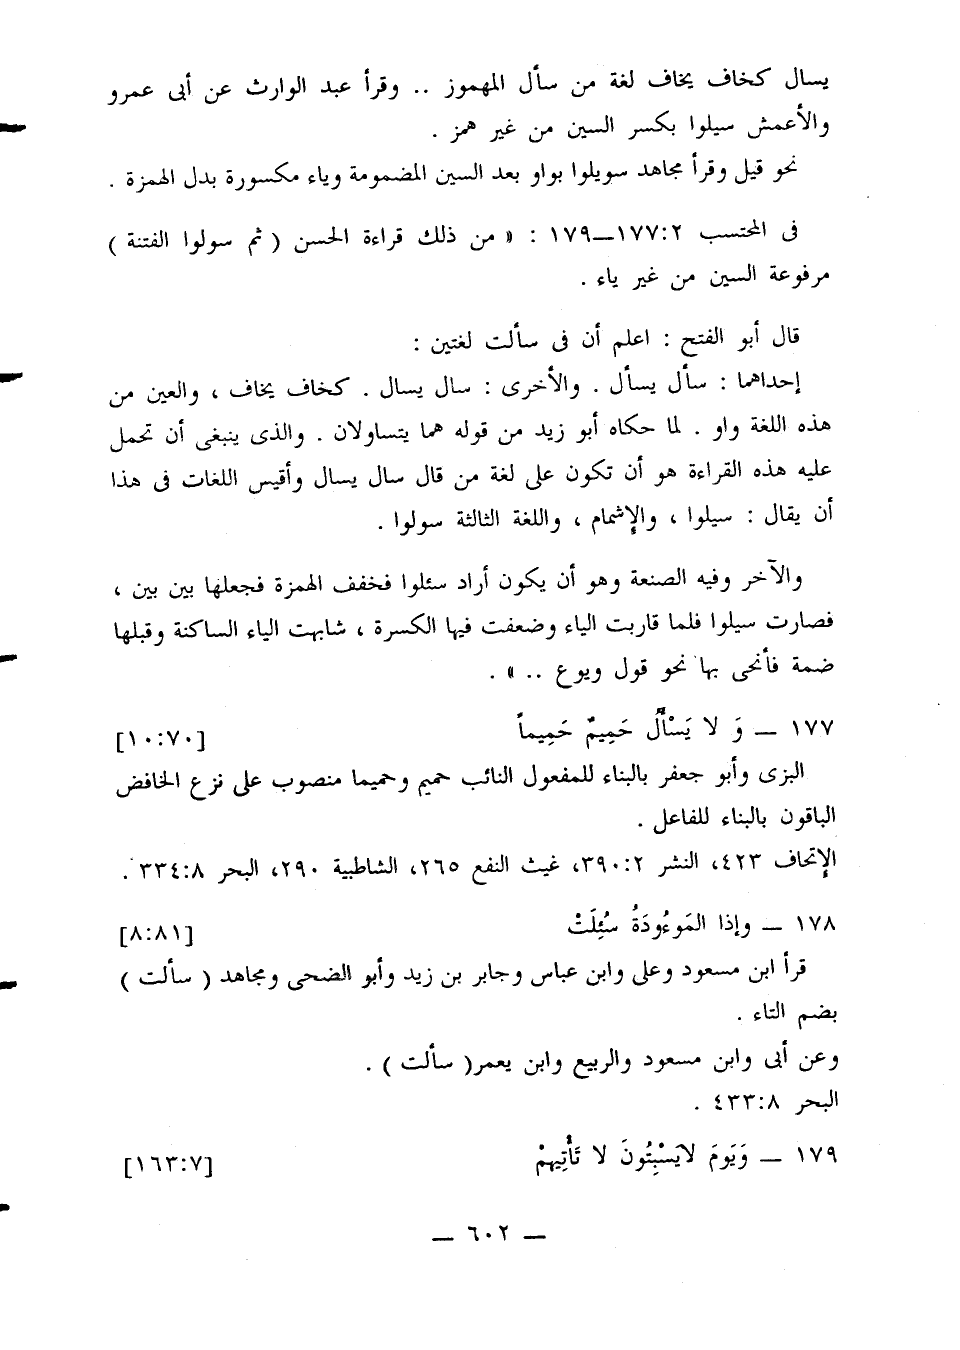 يسال كخاف يخاف لغة من سأل المهموز .. وقرأ عبد الوارث عن أبى عمرو
والأعمش سيلوا بكسر السين من غير همز .
نحو قيل وقرأ مجاهد سويلوا بواو بعد السين المضمومة وياء مكسورة بدل الهمزة .
فى المحتسب ١٧٧:٢—١٧٩ : « من ذلك قراءة الحسن ( ثم سولوا الفتنة )
مرفوعة السين من غير ياء .
قال أبو الفتح : اعلم أن فى سألت لغتين :
إحداهما : سأل يسأل . والأخرى : سال يسال . كخاف يخاف ، والعين من
هذه اللغة واو . لما حكاه أبو زيد من قوله هما يتساولان . والذى ينبغى أن تحمل
عليه هذه القراءة هو أن تكون على لغة من قال سال يسال وأقيس اللغات فى هذا
أن يقال : سيلوا ، والإشمام ، واللغة الثالثة سولوا .
والآخر وفيه الصنعة وهو أن يكون أراد سئلوا فخفف الهمزة فجعلها بين بين ،
فصارت سيلوا فلما قاربت الياء وضعفت فيها الكسرة ، شابهت الياء الساكنة وقبلها
ضمة فأنحى بها نحو قول وبوع .. » .
١٧٧ — وَ لا يَسْأَلُ حَمِيمٌ حَمِيماً [١٠:٧٠]
البزى وأبو جعفر بالبناء للمفعول النائب حميم وحميما منصوب على نزع الخافض
الباقون بالبناء للفاعل .
الإتحاف ٤٢٣، النشر ٣٩٠:٢، غيث النفع ٢٦٥، الشاطبية ٢٩٠، البحر ٣٣٤:٨ .
١٧٨ — وإذا المَوءُودَةُ سُئِلَتْ [٨:٨١]
قرأ ابن مسعود وعلى وابن عباس وجابر بن زيد وأبو الضحى ومجاهد ( سألت )
بضم التاء .
وعن أبى وابن مسعود والربيع وابن يعمر( سألت ) .
البحر ٤٣٣:٨ .
١٧٩ — وَيَومَ لايَسْبِتُونَ لا تَأْتِيهِمْ [١٦٣:٧]
— ٦٠٢ —